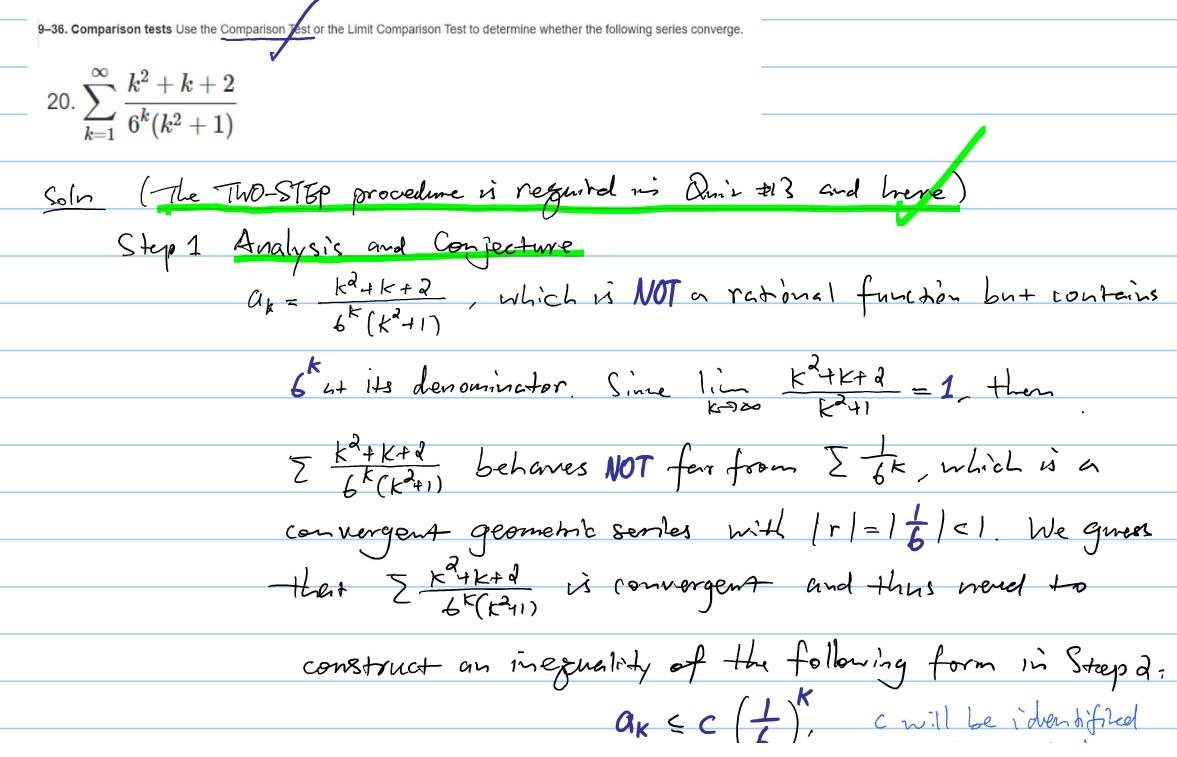 9–36. Comparison tests Use the Comparison Test or the Limit Comparison Test to determine whether the following series converge.
20. ∑_{k=1}^{∞} (k² + k + 2) / (6^k (k² + 1))
Soln (The TWO-STEP procedure is required in Quiz #13 and here)
Step 1 Analysis and Conjecture
a_k = (k²+k+2) / (6^k (k²+1)), which is NOT a rational function but contains
6^k at its denominator. Since lim_{k→∞} (k²+k+2) / (k²+1) = 1, then
Σ (k²+k+2) / (6^k (k²+1)) behaves NOT far from Σ 1/6^k, which is a
convergent geometric series with |r| = |1/6| < 1. We guess
that Σ (k²+k+2) / (6^k (k²+1)) is convergent and thus need to
construct an inequality of the following form in Step 2:
a_k ≤ c (1/6)^k, c will be identified